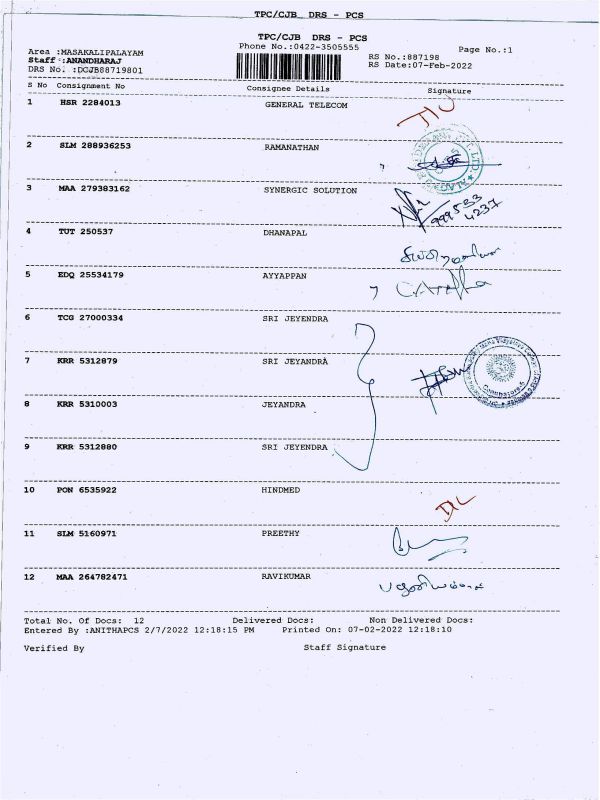 TPC/CJB DRS - PCS
TPC/CJB DRS - PCS
Phone No.:0422-3505555
Page No.:1
Area :MASAKALIPALAYAM
RS No.:887198
Staff :ANANDHARAJ
RS Date:07-Feb-2022
DRS No. :DCJB88719801
S No Consignment No Consignee Details Signature
1 HSR 2284013 GENERAL TELECOM
2 SLM 288936253 RAMANATHAN
3 MAA 279383162 SYNERGIC SOLUTION
999533
4237
4 TUT 250537 DHANAPAL
5 EDQ 25534179 AYYAPPAN
6 TCG 27000334 SRI JEYENDRA
7 KRR 5312879 SRI JEYANDRA
8 KRR 5310003 JEYANDRA
9 KRR 5312880 SRI JEYENDRA
10 PON 6535922 HINDMED
11 SLM 5160971 PREETHY
12 MAA 264782471 RAVIKUMAR
Total No. Of Docs: 12 Delivered Docs: Non Delivered Docs:
Entered By :ANITHAPCS 2/7/2022 12:18:15 PM Printed On: 07-02-2022 12:18:10
Verified By Staff Signature